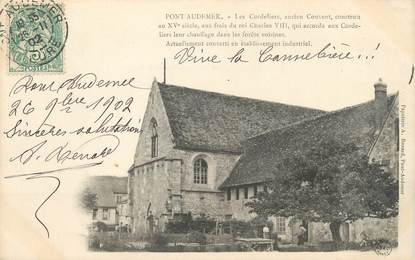 PONT-AUDEMER. - Les Cordeliers, ancien Couvent, construit
au XVe siècle, aux frais du roi Charles VIII, qui accorda aux Corde-
liers leur chauffage dans les forêts voisines.
Actuellement converti en établissement industriel.
Vive la Cannebière!!!
Pont Audemer
26 9bre 1902
Sincères salutations
Papeterie A. Pont-Audemer